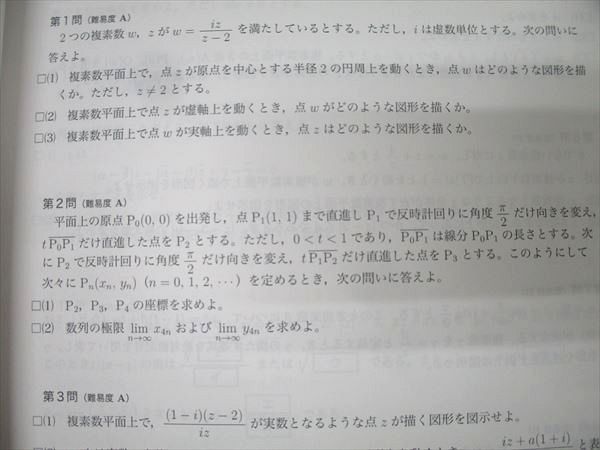 第1問 (難易度 A)
2つの複素数 w, z が w = iz/(z−2) を満たしているとする。ただし, i は虚数単位とする。次の問いに
答えよ。
□(1) 複素数平面上で, 点 z が原点を中心とする半径 2 の円周上を動くとき, 点 w はどのような図形を描
くか。ただし, z ≠ 2 とする。
□(2) 複素数平面上で点 z が虚軸上を動くとき, 点 w がどのような図形を描くか。
□(3) 複素数平面上で点 w が実軸上を動くとき, 点 z はどのような図形を描くか。
第2問 (難易度 A)
平面上の原点 P₀(0, 0) を出発し, 点 P₁(1, 1) まで直進し P₁ で反時計回りに角度 π/2 だけ向きを変え,
t P₀P₁ だけ直進した点を P₂ とする。ただし, 0 < t < 1 であり, P₀P₁ は線分 P₀P₁ の長さとする。次
に P₂ で反時計回りに角度 π/2 だけ向きを変え, t P₁P₂ だけ直進した点を P₃ とする。このようにして
次々に Pₙ(xₙ, yₙ) (n = 0, 1, 2, ⋯) を定めるとき, 次の問いに答えよ。
□(1) P₂, P₃, P₄ の座標を求めよ。
□(2) 数列の極限 lim n→∞ x₄ₙ および lim n→∞ y₄ₙ を求めよ。
第3問 (難易度 A)
□(1) 複素数平面上で, (1−i)(z−2)/iz が実数となるような点 z が描く図形を図示せよ。
iz + a(1+i) と表